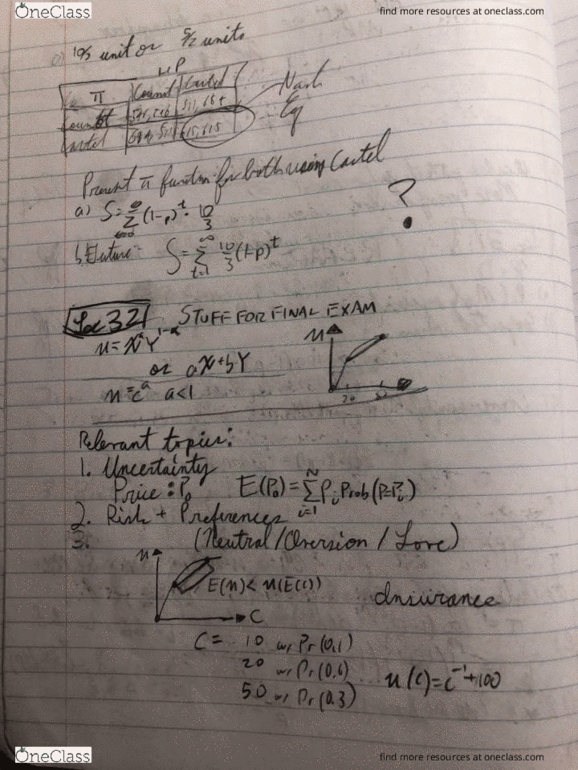 OneClass
find more resources at oneclass.com
10/3 unit or 5/2 units
HP
π Cournot Cartel
Cournot
Cartel
Nash
Eq
Present π function for both using Cartel
a) S = ∞ Σ t=0 (1-p)^t · 10/3
?
b. Future S = ∞ Σ t=1 10/3 (1-p)^t
Lec 32 STUFF FOR FINAL EXAM
u
or ax+bY
u = c^a a<1
20 50
Relevant topics:
1. Uncertainty
Price : P₀ E(P₀) = N Σ i=1 Pᵢ Prob(P=Pᵢ)
2. Risk + Preferences
3. (Neutral/Aversion/Love)
u
E(u)< u(E(c))
C
Insurance
C = 10 w/ Pr(0.1)
20 w/ Pr(0.6)
50 w/ Pr(0.3)
u(c)=c^-1+100
OneClass
find more resources at oneclass.com